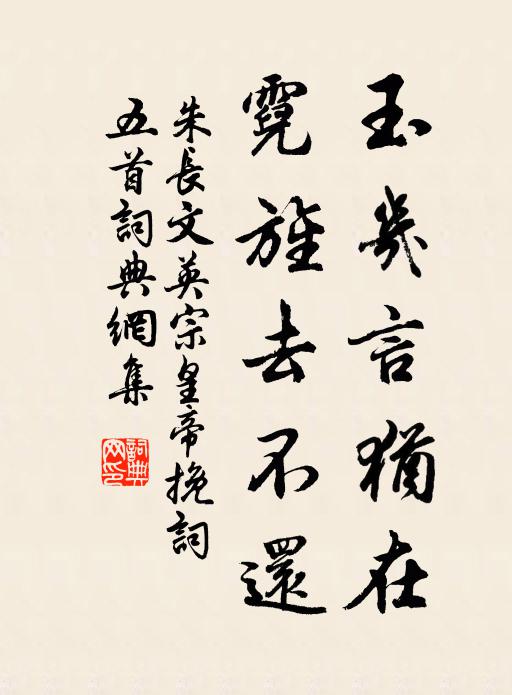 玉幾言猶在
霓旌去不還
朱長文英宗皇帝挽詞
五首詞典網集
詞典網印